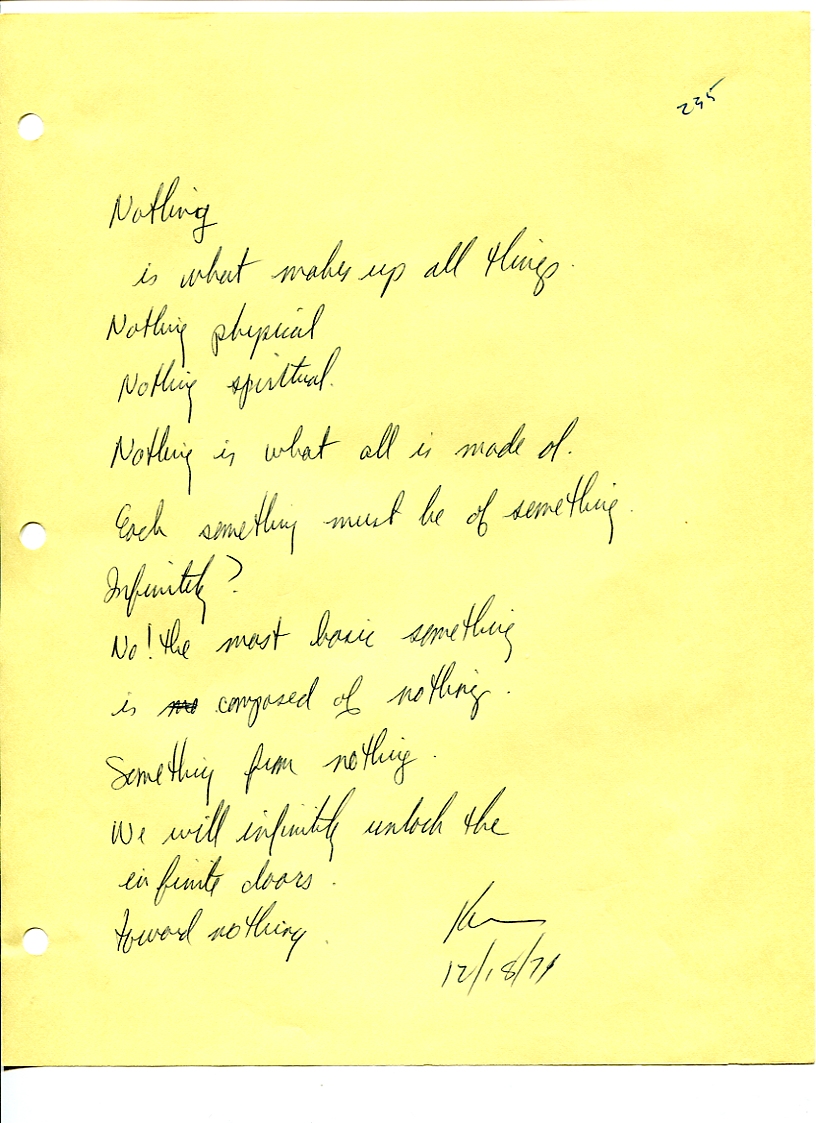 235
Nothing
is what makes up all things.
Nothing physical
Nothing spiritual.
Nothing is what all is made of.
Each something must be of something.
Infinitely?
No! the most basic something
is composed of nothing.
Something from nothing.
We will infinitely unlock the
infinite doors.
toward nothing.
12/18/71